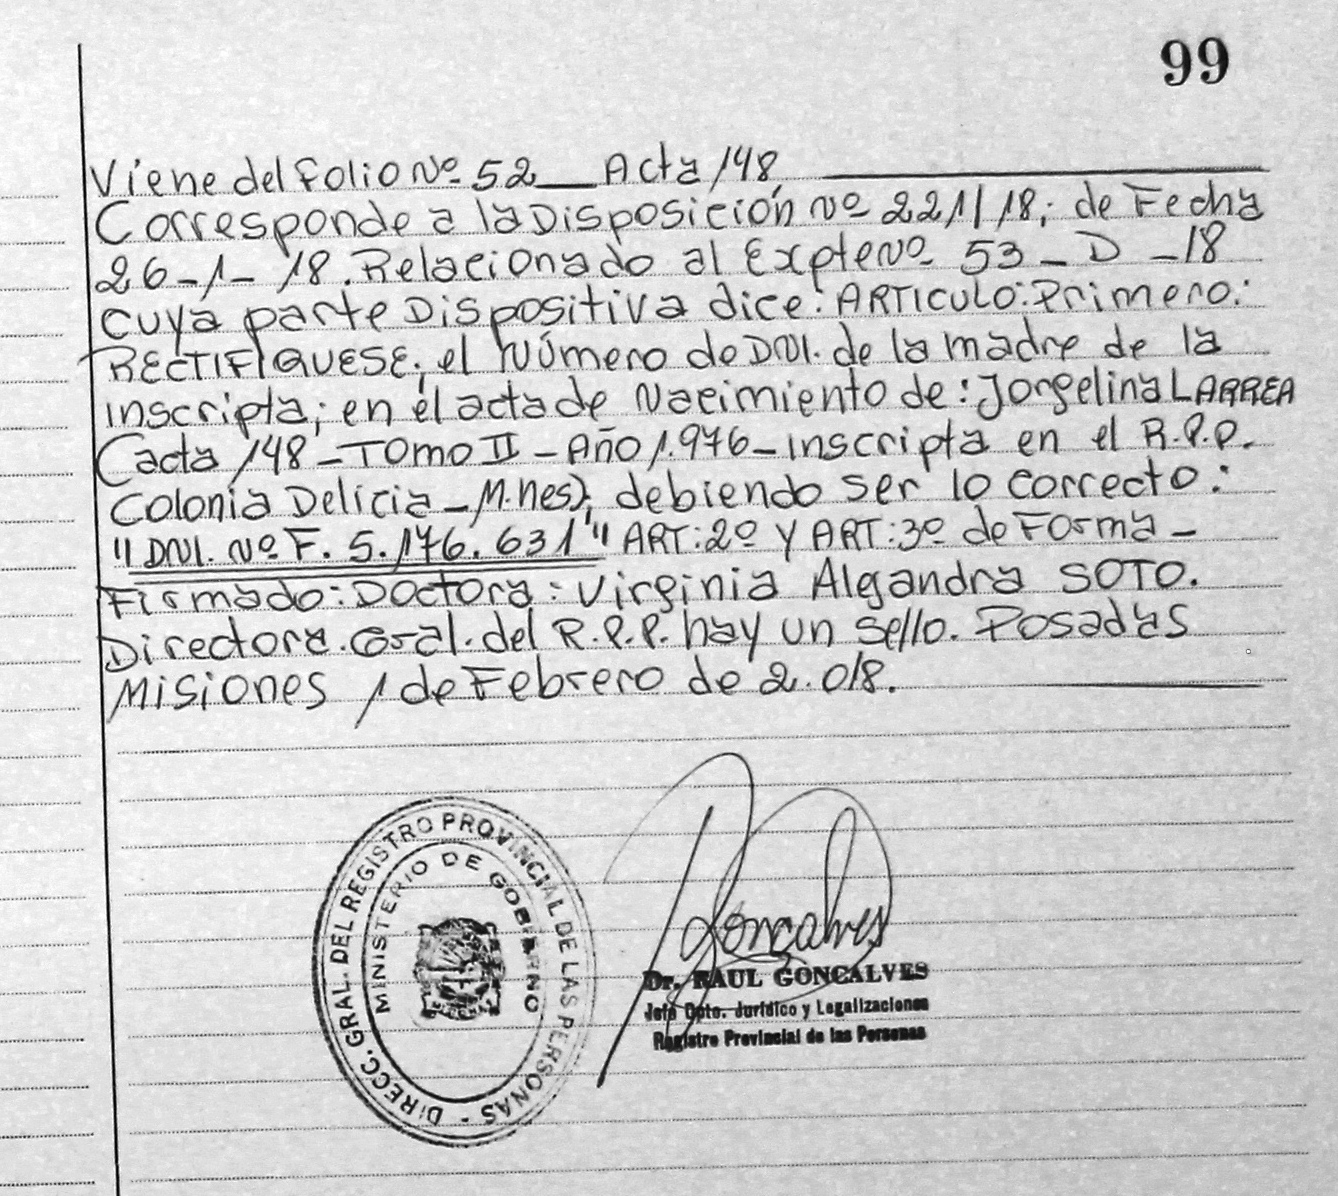 99
Viene del Folio Nº 52 _ Acta 148,
Corresponde a la Disposición Nº 221/18; de Fecha
26-1-18. Relacionado al Expte Nº 53 _ D _ 18
cuya parte Dispositiva dice: ARTICULO: Primero:
RECTIFIQUESE; el Número de DNI. de la madre de la
inscripta; en el acta de Nacimiento de: Jorgelina LARREA
(acta 148 - TOMO II - Año 1.976 - inscripta en el R.P.P.
Colonia Delicia - M.nes); debiendo ser lo correcto:
"DNI. Nº F. 5.176.631" ART: 2º Y ART: 3º de Forma -
Firmado: Doctora: Virginia Alejandra SOTO.
Directora. Gral. del R.P.P. hay un sello. Posadas
Misiones 1 de Febrero de 2.018.
DIRECC. GRAL. DEL REGISTRO PROVINCIAL DE LAS PERSONAS -
MINISTERIO DE GOBIERNO
Goncalves
Dr. RAUL GONCALVES
Jefe Dpto. Jurídico y Legalizaciones
Registro Provincial de las Personas